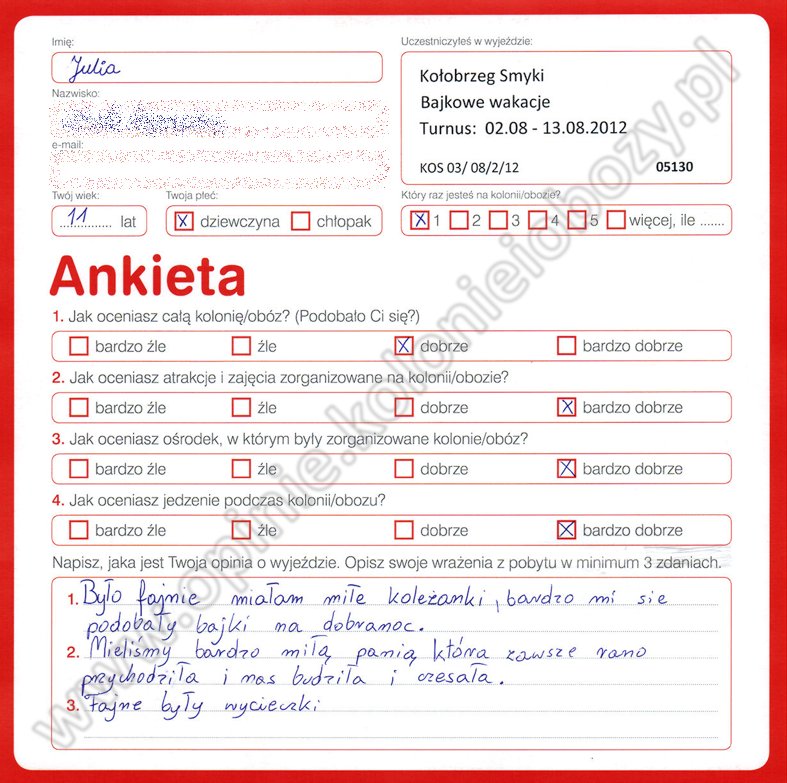 Imię:
Julia
Uczestniczyłeś w wyjeździe:
Kołobrzeg Smyki
Bajkowe wakacje
Turnus: 02.08 - 13.08.2012
KOS 03/ 08/2/12 05130
Nazwisko:
e-mail:
Twój wiek: Twoja płeć: Który raz jesteś na kolonii/obozie?
11 lat X dziewczyna chłopak X 1 2 3 4 5 więcej, ile .......
Ankieta
1. Jak oceniasz całą kolonię/obóz? (Podobało Ci się?)
bardzo źle źle X dobrze bardzo dobrze
2. Jak oceniasz atrakcje i zajęcia zorganizowane na kolonii/obozie?
bardzo źle źle dobrze X bardzo dobrze
3. Jak oceniasz ośrodek, w którym były zorganizowane kolonie/obóz?
bardzo źle źle dobrze X bardzo dobrze
4. Jak oceniasz jedzenie podczas kolonii/obozu?
bardzo źle źle dobrze X bardzo dobrze
Napisz, jaka jest Twoja opinia o wyjeździe. Opisz swoje wrażenia z pobytu w minimum 3 zdaniach.
1. Było fajnie miałam miłe koleżanki, bardzo mi sie
podobały bajki na dobranoc.
2. Mieliśmy bardzo miłą panią która zawsze rano
przychodziła i nas budziła i czesała.
3. Fajne były wycieczki
www.opinie.kolonieiobozy.pl